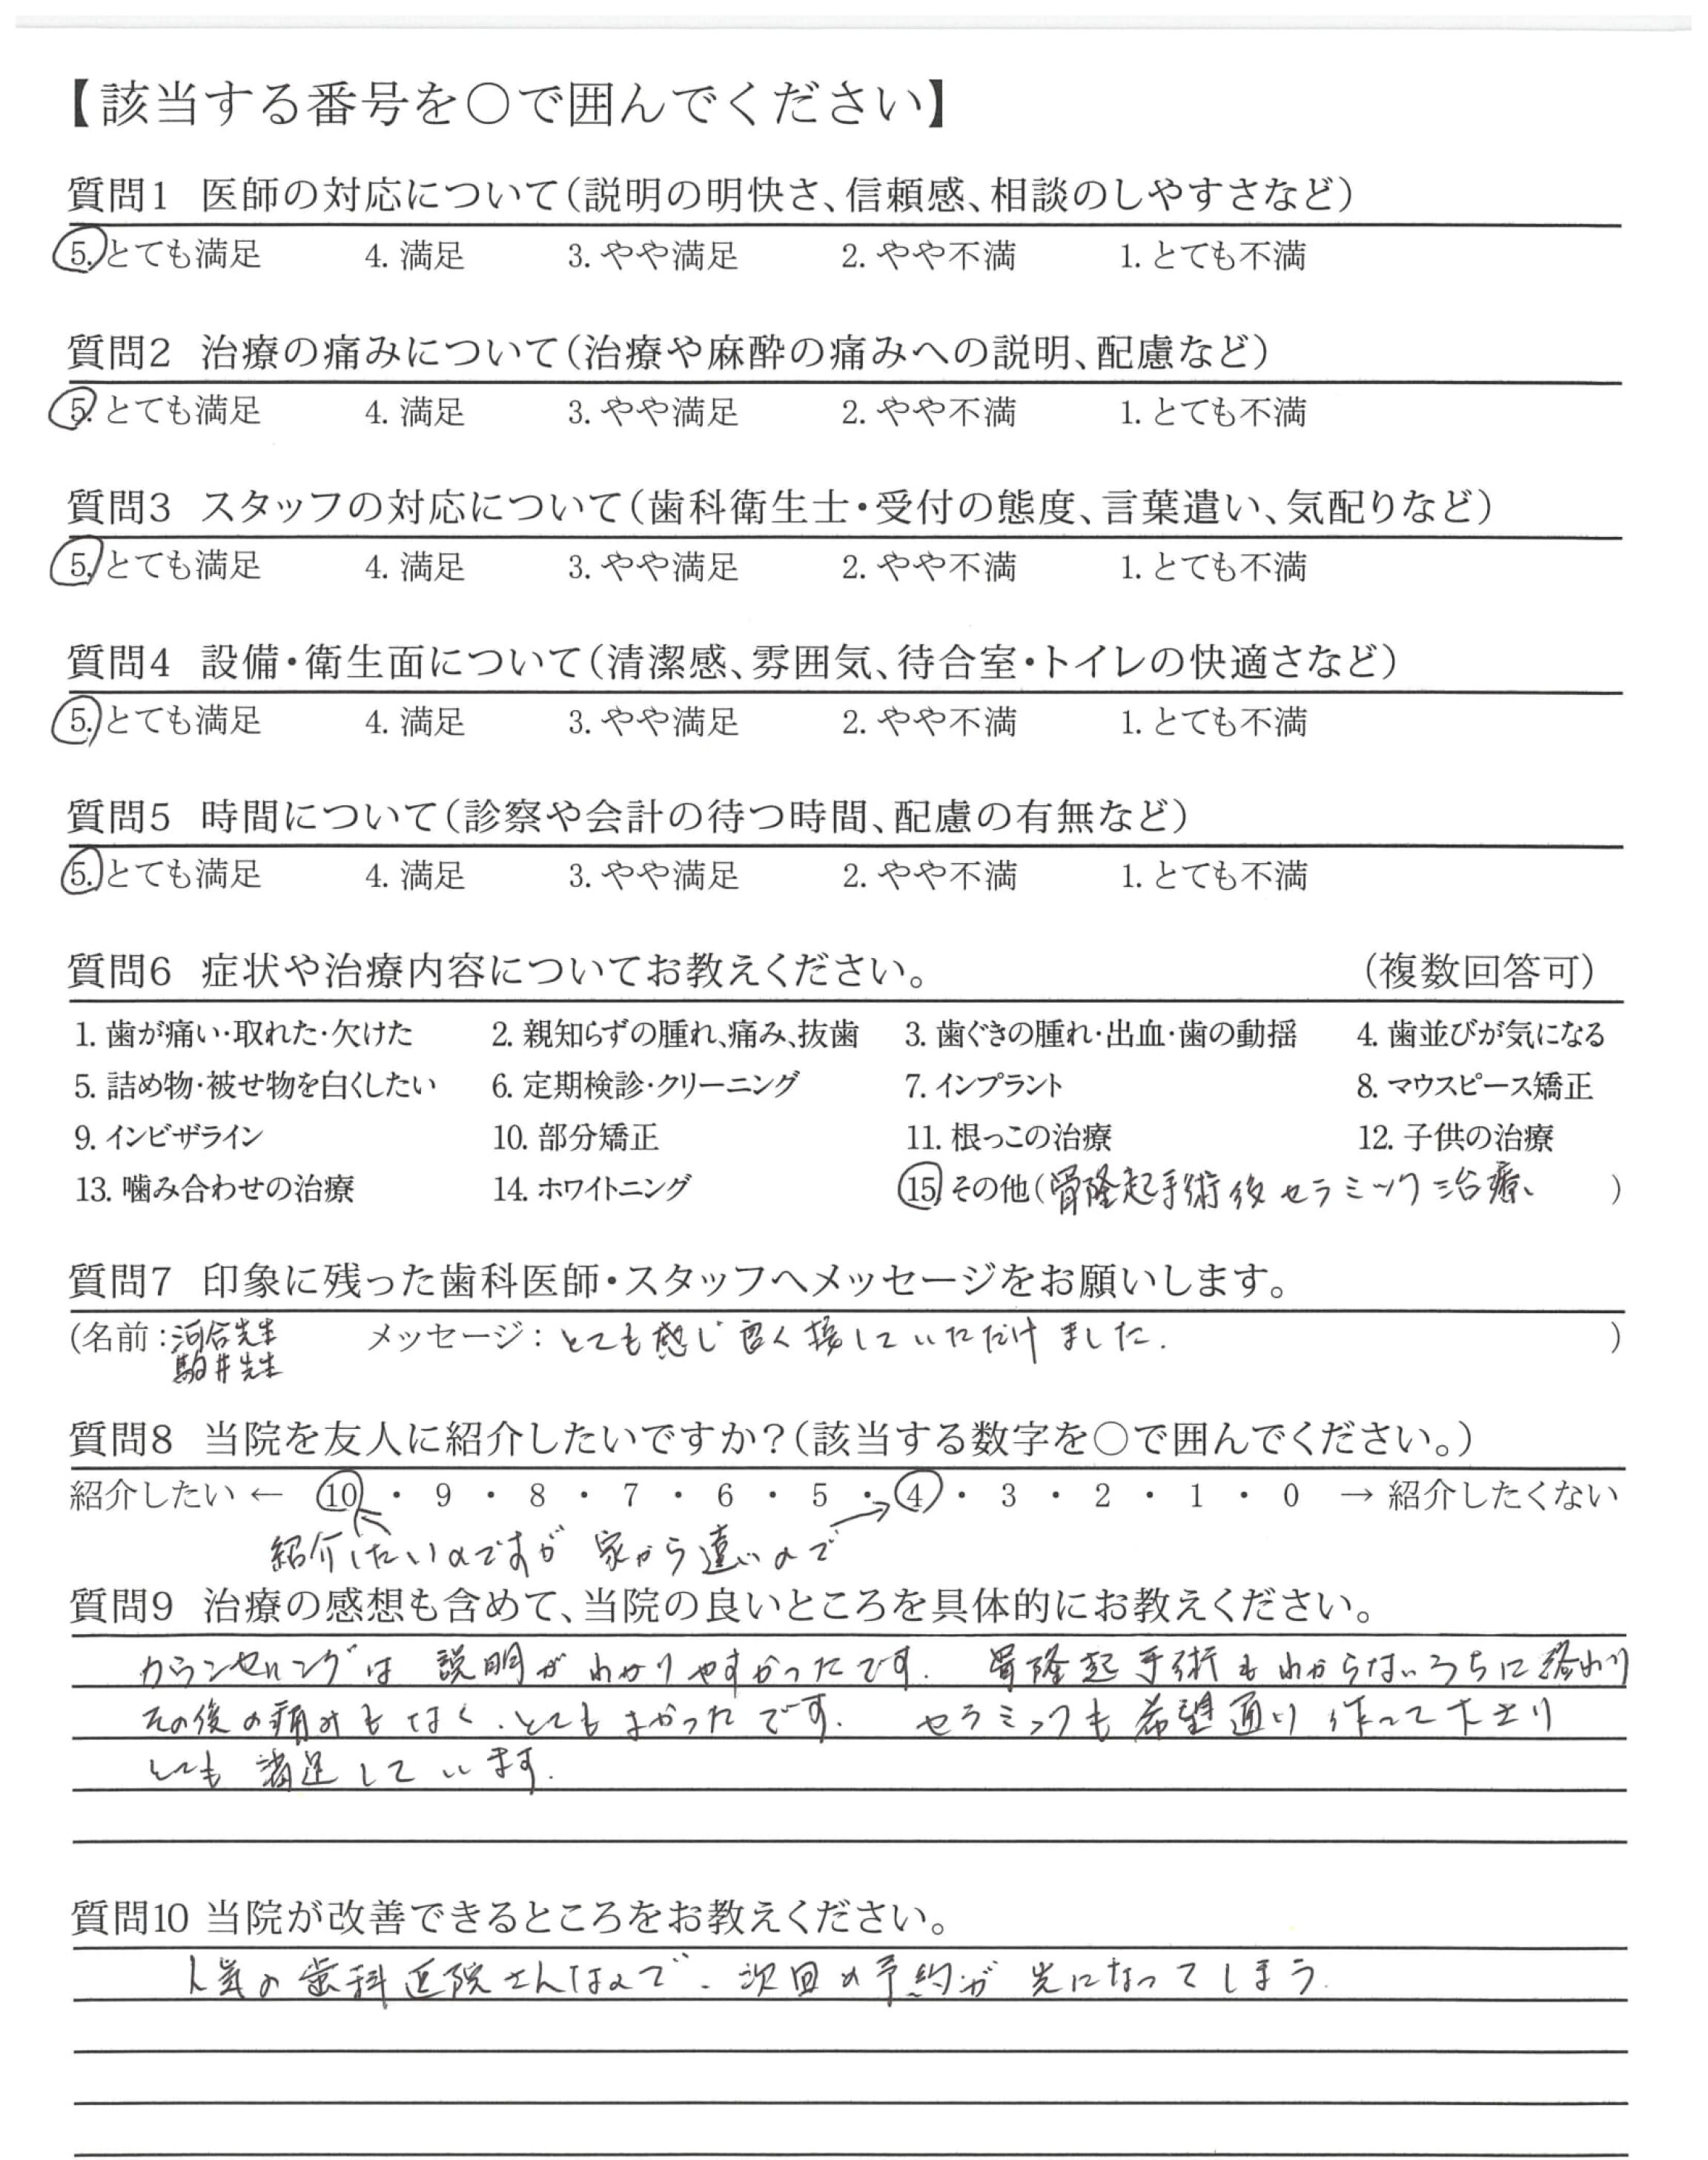 【該当する番号を○で囲んでください】
質問1 医師の対応について(説明の明快さ、信頼感、相談のしやすさなど)
5. とても満足 4. 満足 3. やや満足 2. やや不満 1. とても不満
質問2 治療の痛みについて(治療や麻酔の痛みへの説明、配慮など)
5. とても満足 4. 満足 3. やや満足 2. やや不満 1. とても不満
質問3 スタッフの対応について(歯科衛生士・受付の態度、言葉遣い、気配りなど)
5. とても満足 4. 満足 3. やや満足 2. やや不満 1. とても不満
質問4 設備・衛生面について(清潔感、雰囲気、待合室・トイレの快適さなど)
5. とても満足 4. 満足 3. やや満足 2. やや不満 1. とても不満
質問5 時間について(診察や会計の待つ時間、配慮の有無など)
5. とても満足 4. 満足 3. やや満足 2. やや不満 1. とても不満
質問6 症状や治療内容についてお教えください。 (複数回答可)
1. 歯が痛い・取れた・欠けた 2. 親知らずの腫れ、痛み、抜歯 3. 歯ぐきの腫れ・出血・歯の動揺 4. 歯並びが気になる
5. 詰め物・被せ物を白くしたい 6. 定期検診・クリーニング 7. インプラント 8. マウスピース矯正
9. インビザライン 10. 部分矯正 11. 根っこの治療 12. 子供の治療
13. 噛み合わせの治療 14. ホワイトニング 15 その他(骨隆起手術後セラミック治療、 )
質問7 印象に残った歯科医師・スタッフへメッセージをお願いします。
(名前:河合先生 メッセージ:とても感じ良く接していただけました. )
駒井先生
質問8 当院を友人に紹介したいですか?(該当する数字を○で囲んでください。)
紹介したい ← 10 ・ 9 ・ 8 ・ 7 ・ 6 ・ 5 ・ 4 ・ 3 ・ 2 ・ 1 ・ 0 → 紹介したくない
紹介したいのですが 家から遠いので
質問9 治療の感想も含めて、当院の良いところを具体的にお教えください。
カウンセリングは 説明がわかりやすかったです. 骨隆起手術もわからないうちに終わり
その後の痛みもなく、とてもよかったです. セラミックも希望通り作って下さり
とても満足しています.
質問10 当院が改善できるところをお教えください。
人気の歯科医院さんなので、次回の予約が先になってしまう.